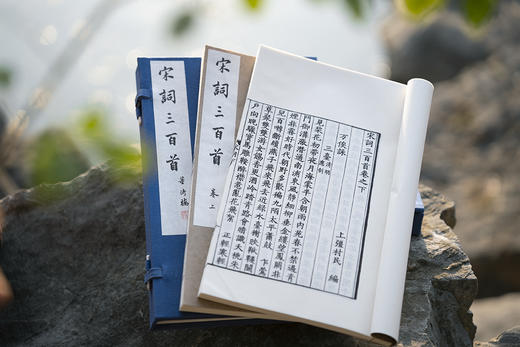 宋詞三百首
宋詞三百首
卷上
宋詞三百首卷之下
上彊村民 編
万俟詠
三臺 清明應制
見梨花初帶夜月海棠半含朝雨內苑春不禁過青
門御溝漲潛通南浦東風靜細柳垂金縷望鳳闕非
煙非霧好時代朝野多歡徧九陌太平簫鼓 乍鶯
兒百囀斷續燕子飛來飛去近綠水臺榭映鞦韆鬪
草聚雙雙遊女餳香更酒冷踏青路會暗識夭桃朱
戶向晚驟寶馬雕鞍醉襟惹亂花飛絮 正輕寒輕